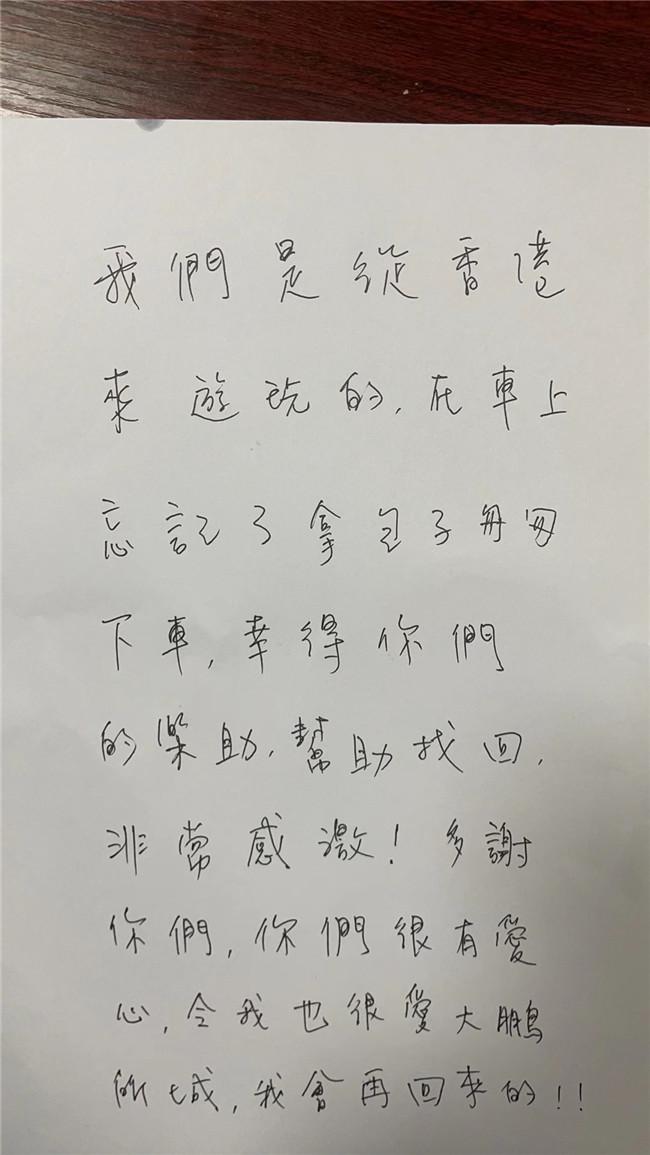 我們是從香港
來遊玩的,在車上
忘記了拿包子匆匆
下車,幸得你們
的樂助,幫助找回,
非常感激!多謝
你們,你們很有愛
心,令我也很愛大鵬
所城,我會再回來的!!